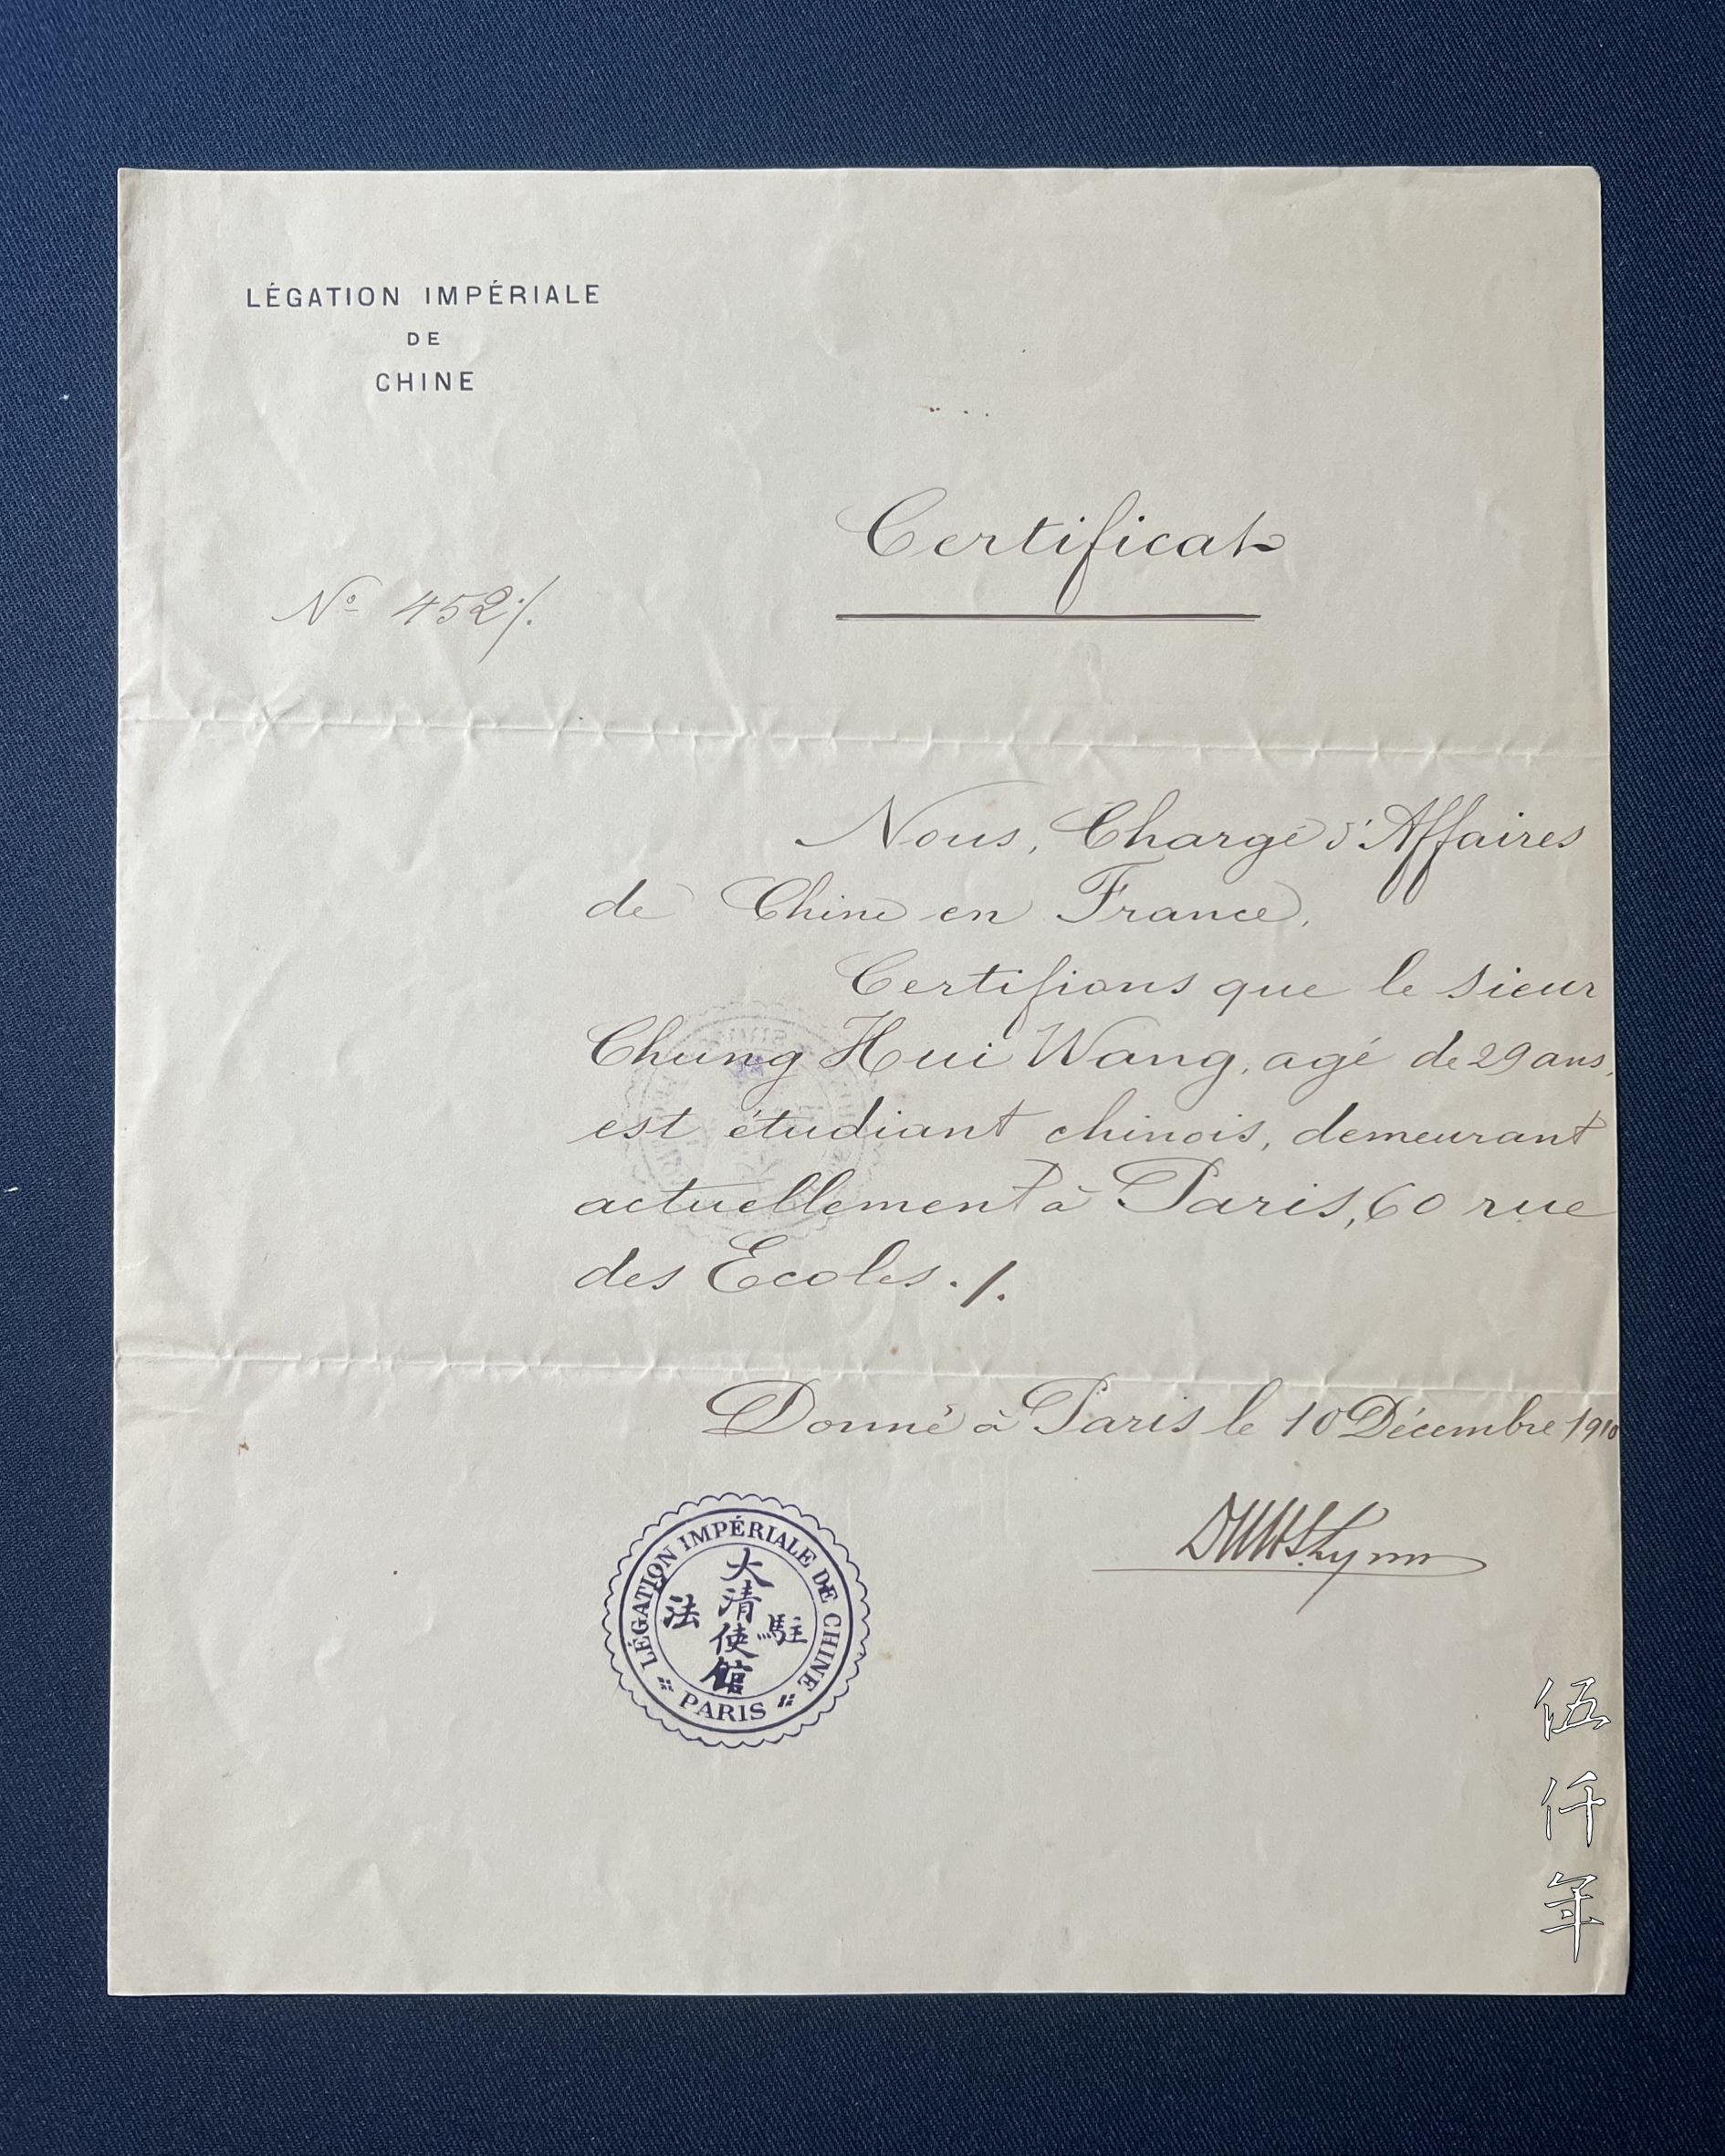 LÉGATION IMPÉRIALE
DE
CHINE
Certificat
Nº 452./.
Nous, Chargé d'Affaires
de Chine en France,
Certifions que le sieur
Chung Hui Wang, agé de 29 ans,
est étudiant chinois, demeurant
actuellement à Paris, 60 rue
des Ecoles ./.
Donné à Paris le 10 Décembre 1910
LÉGATION IMPÉRIALE DE CHINE
PARIS
大清使館
駐
法
伍仟年